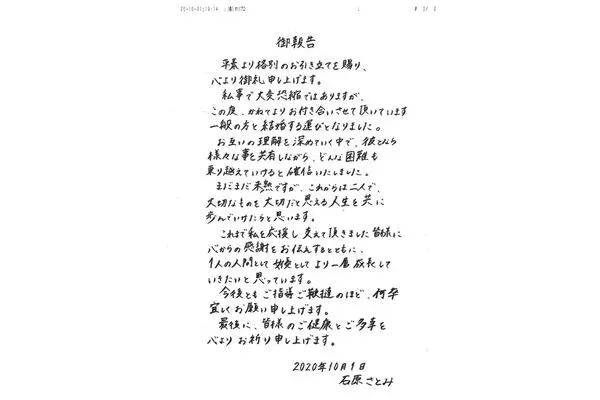 御報告
平素より格別のお引き立てを賜り、
心より御礼申し上げます。
私事で大変恐縮ではありますが、
この度、かねてよりお付き合いさせて頂いています
一般の方と結婚する運びとなりました。
お互いの理解を深めていく中で、彼となら
様々な事を共有しながら、どんな困難も
乗り越えていけると確信いたしました。
まだまだ未熟ですが、これからは二人で、
大切なものを大切だと思える人生を共に
歩んでいけたらと思います。
これまで私を応援し支えて頂きました皆様に
心からの感謝をお伝えするとともに、
1人の人間として 女優として より一層 成長して
いきたいと思っています。
今後ともご指導ご鞭撻のほど、何卒
宜しくお願い申し上げます。
最後に、皆様のご健康とご多幸を
心よりお祈り申し上げます。
2020年10月1日
石原さとみ